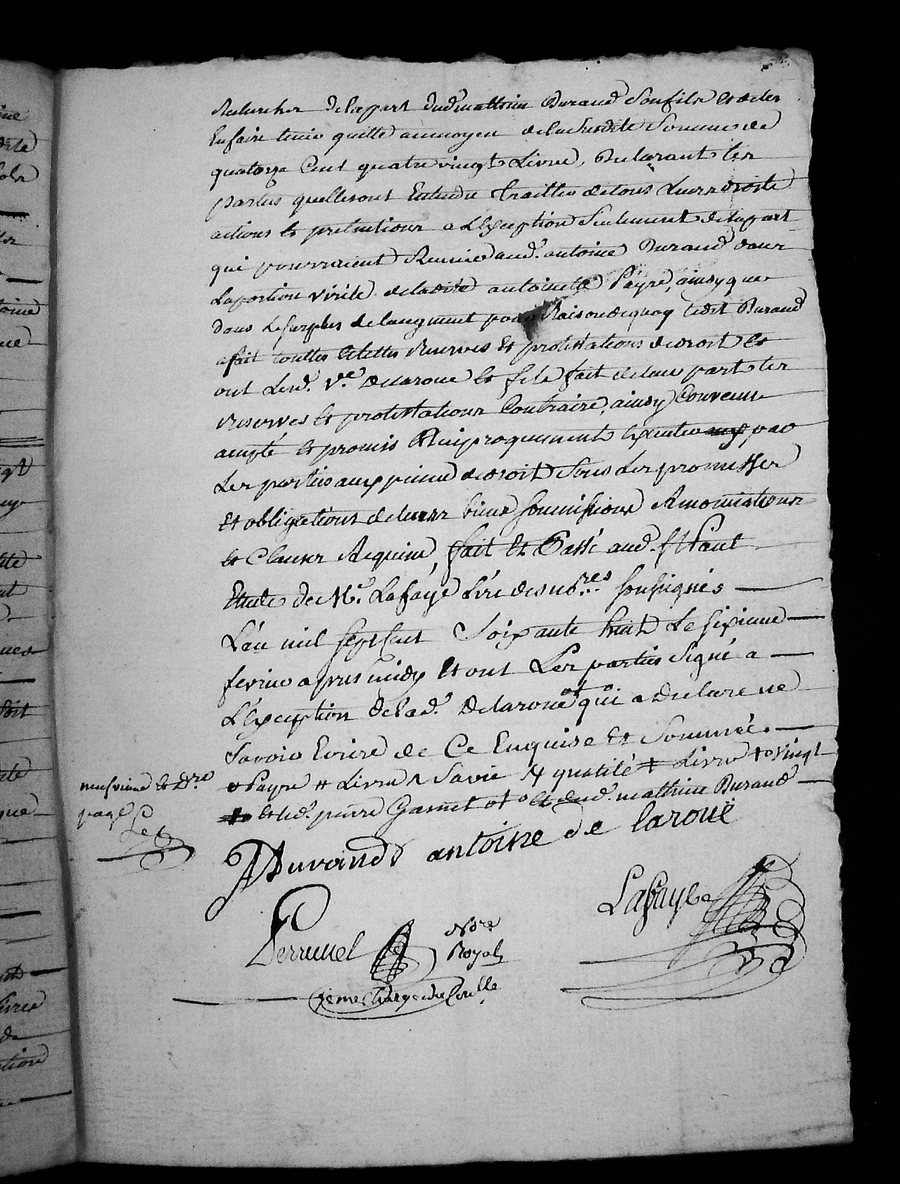 rechercher delapart dudt mathieu Durand Sonfils et deles
En faire tenir quitte aumoyen de laSusdite Somme de
quatorze Cent quatre vingt Livre, Declarant les
parties quelles sont Entendu traittes detous Leurs droits
actions et pretentions a L'Exception Seulement delapart
qui pourraient Revenir aud. antoine Durand dans
Laportion virile deladite antoinette Payre, ainsy que
dans Lesurplus de laugment pour Raison dequoy Ledit Durand
a fait touttes reserves Et protestations de droit Et
ont Lesd. Ve. Delaroue et fils fait de leur part les
reserves et protestations Contraire, ainsy Convenu
accepté et promis Reciproquement Executer par
Les parties aux peine de droit Sous Les promesses
Et obligations de leurs biens Soumissions Renonciations
et Clauses Requise, fait Et Passé aud. St Paul
Etude de Me. Lafaye L'un des nores. Soussignés
L'an mil Sept Cent Soixante huit Le Sixieme
fevrier apres midy Et ont Les parties Signé a
L'Exception de lad. Delaroue qui a declaré ne
Savoir Ecrire de Ce Enquise Et Sommée.
Payre # Livre Livre vingt
pierre Garnet Et dud. mathieu Durand
neufvieme et Dre
page
JDurand antoine de laroüe
Lafaye
Perrunel Nore
Royal